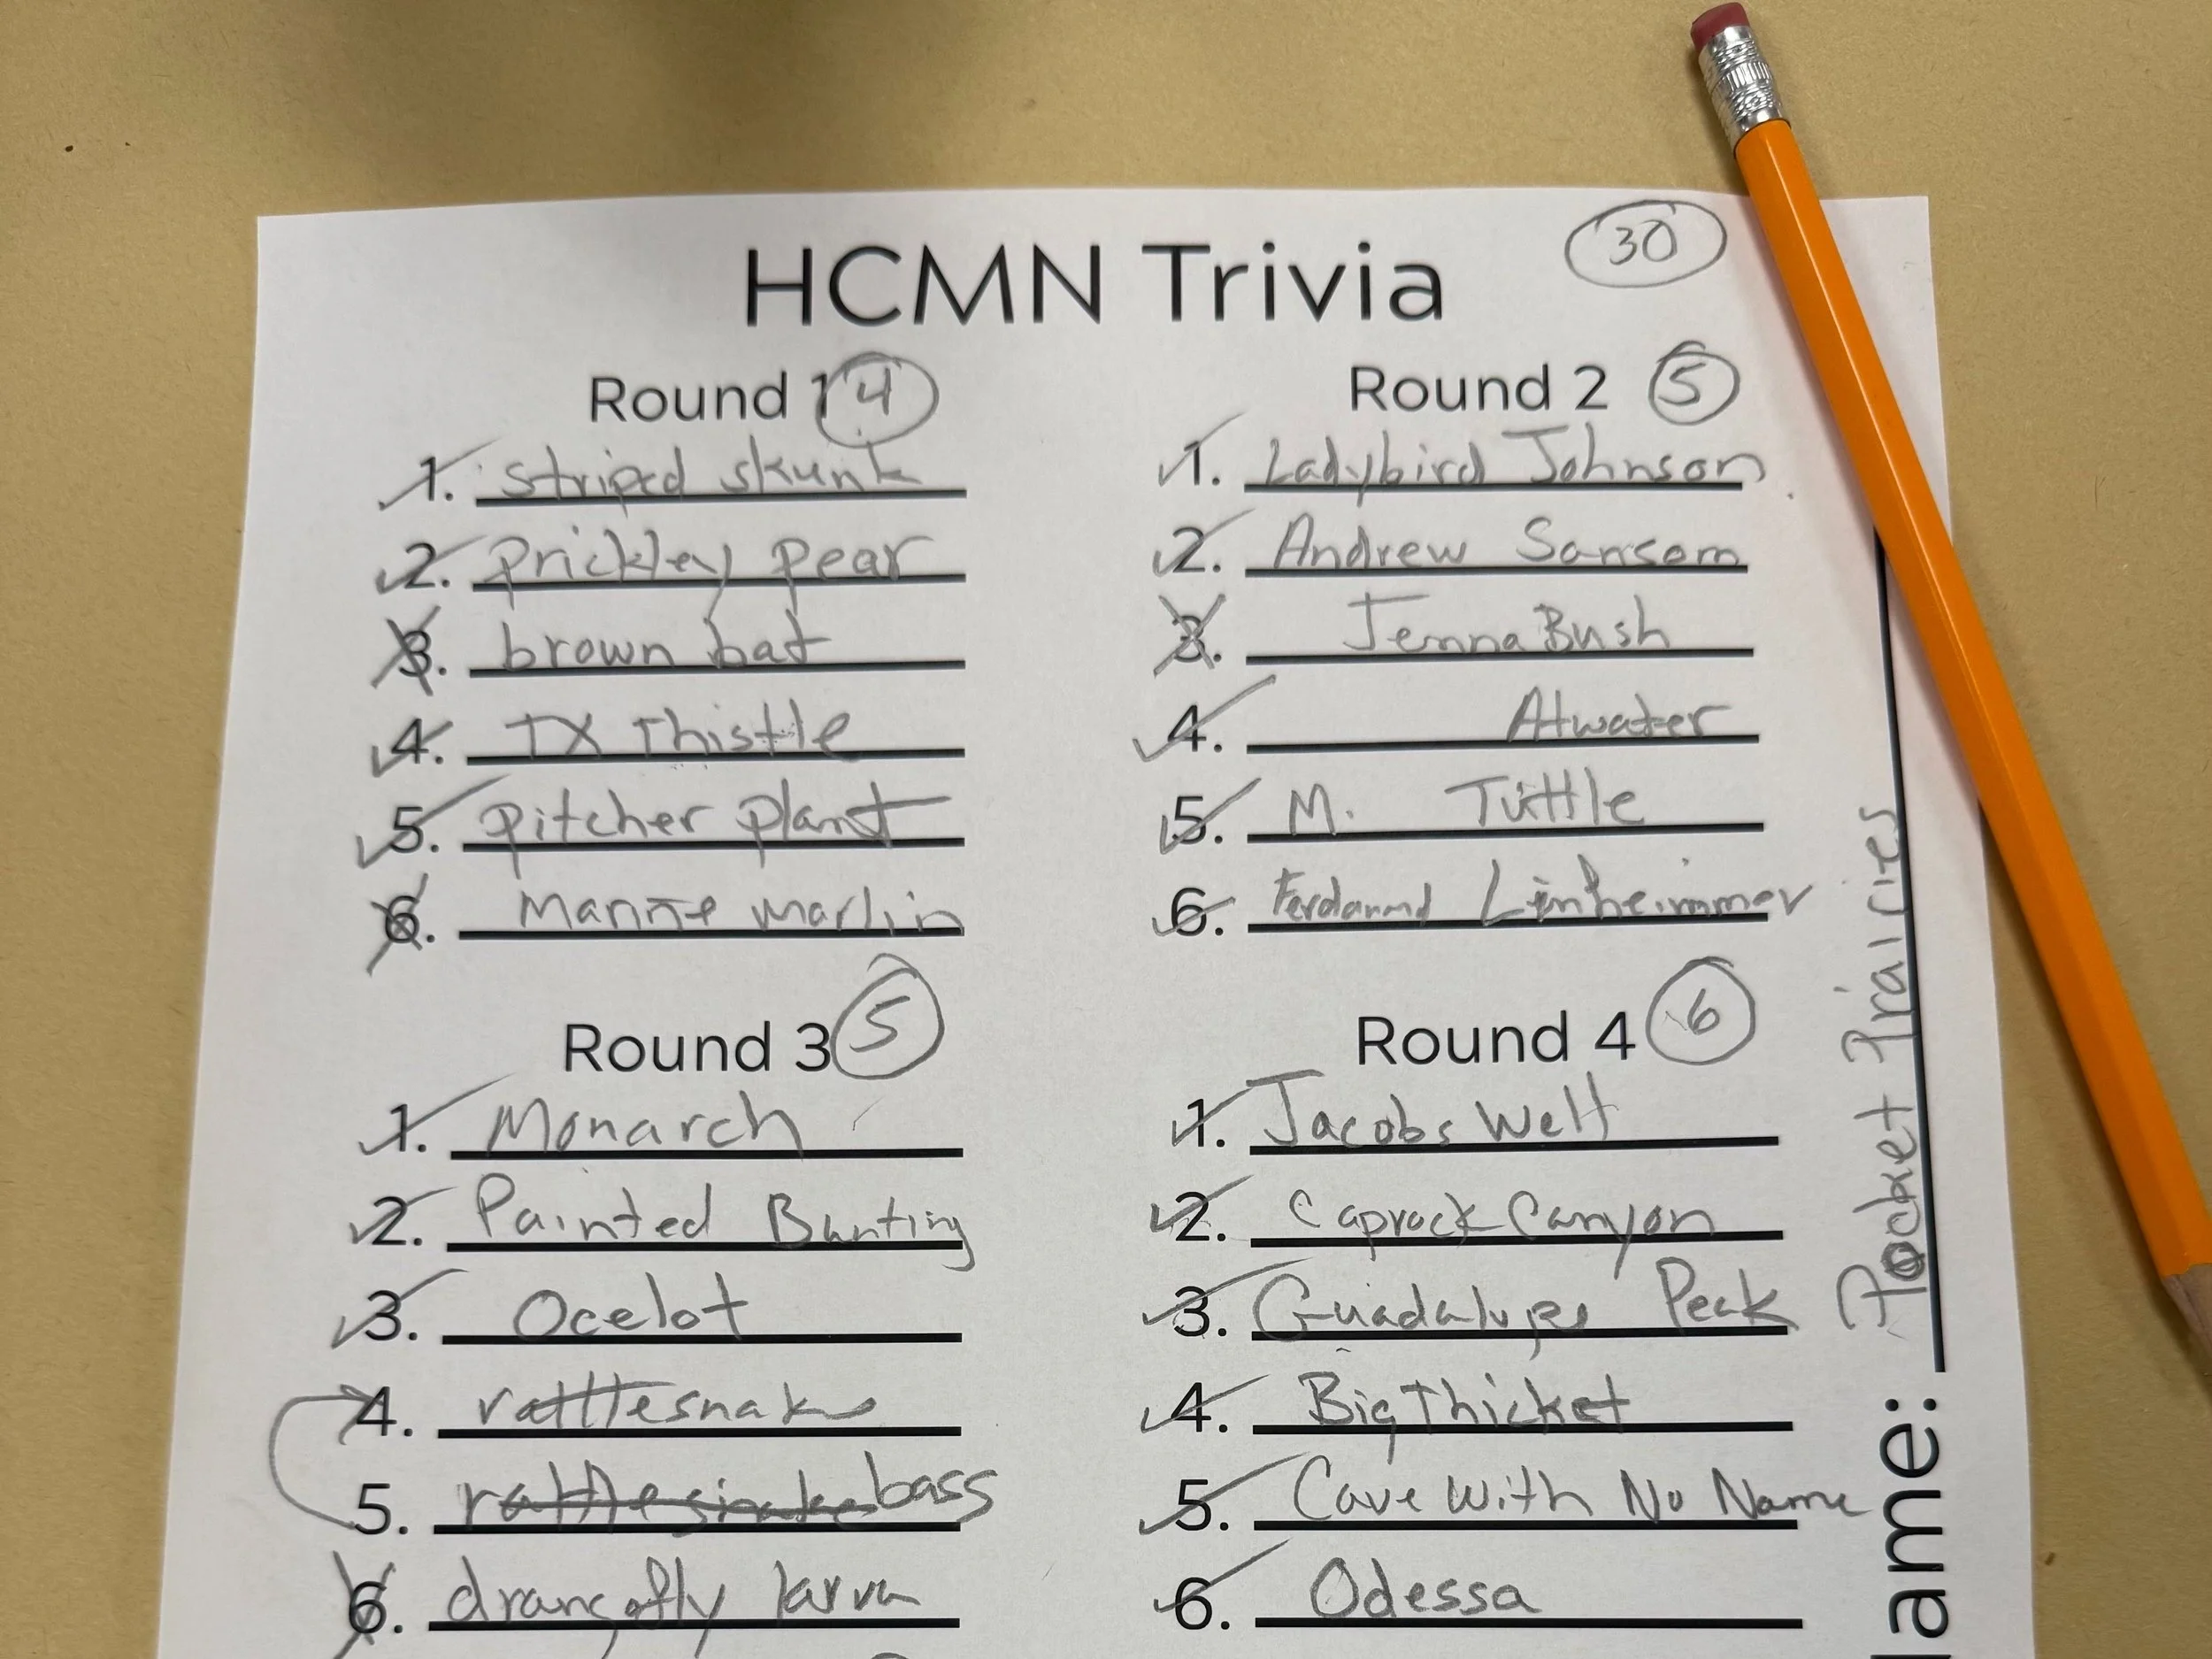 HCMN Trivia 30
Round 1 4
1. striped skunk
2. prickley pear
3. brown bat
4. TX Thistle
5. pitcher plant
6. marlin
Round 2 5
1. Ladybird Johnson
2. Andrew Sansom
3. Jenna Bush
4. Atwater
5. M. Tuttle
6. Ferdanand
Round 3 5
1. Monarch
2. Painted Bunting
3. Ocelot
4. rattlesnake
5. rattlesnake bass
6. larva
Round 4 6
1. Jacobs Well
2. Caprock Canyon
3. Guadalupe Peak
4. Big Thicket
5. Cave With No Name
6. Odessa
ame: Pocket Prairies